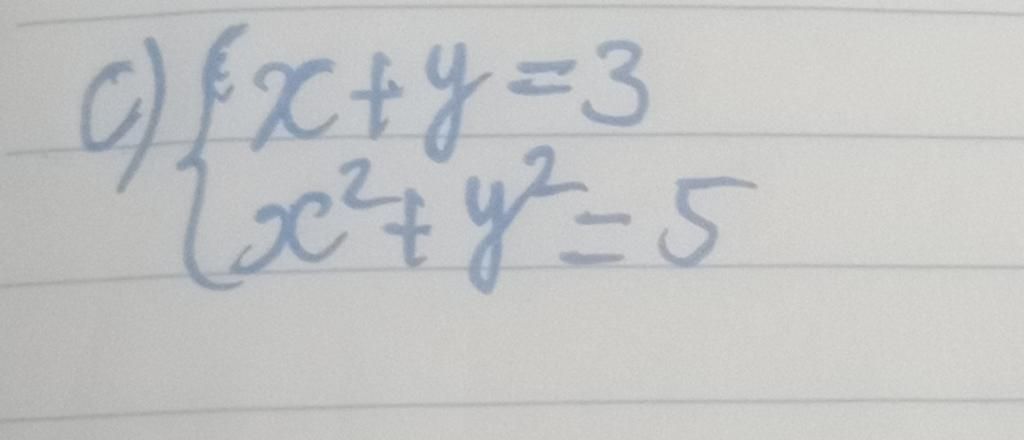 c) { x + y = 3
x² + y² = 5